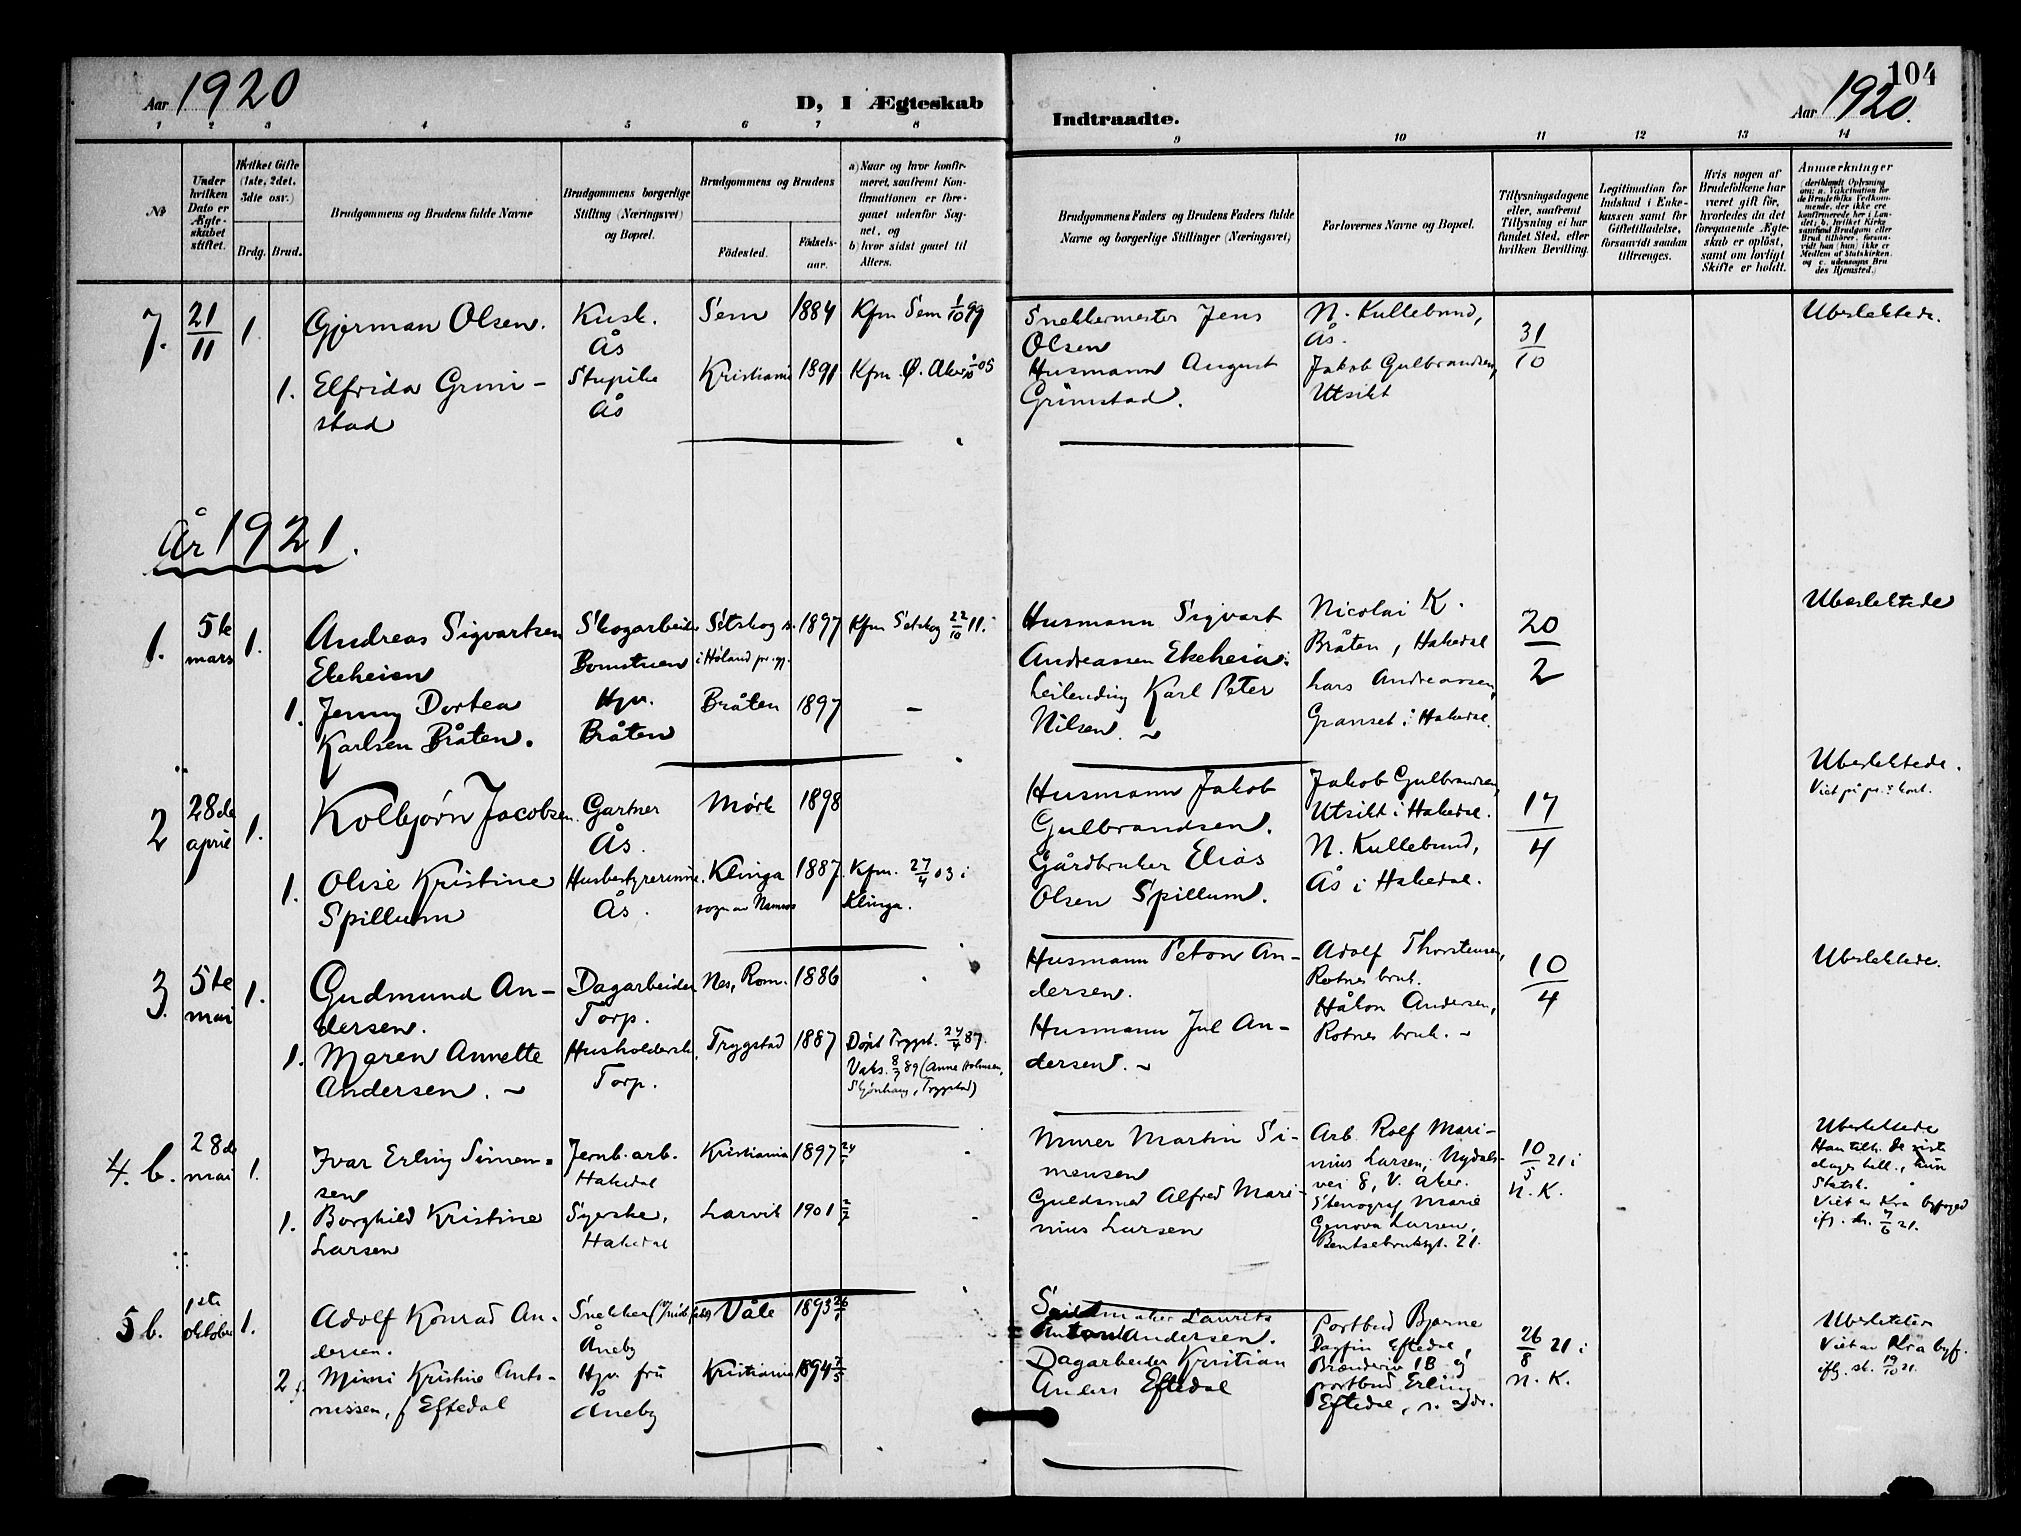 Aar 1920
D, I Ægteskab
Indtraadte.
104
Aar 1920.
1 2 3 4 5 6 7 8 9 10 11 12 13 14
№
Under hvilken Dato er Ægteskabet stiftet.
Hvilket Gifte (1ste, 2det, 3dte osv.)
Brdg. Brud.
Brudgommens og Brudens fulde Navne
Brudgommens borgerlige Stilling (Næringsvei) og Bopæl.
Brudgommens og Brudens
Födested.
Födsels-aar.
a) Naar og hvor konfirmeret, saafremt Konfirmationen er foregaaet udenfor Sognet, og
b) hvor sidst gaaet til Alters.
Brudgommens Faders og Brudens Faders fulde Navne og borgerlige Stillinger (Næringsvei)
Forlovernes Navne og Bopæl.
Tillysningsdagene eller, saafremt Tillysning ei har fundet Sted, efter hvilken Bevilling.
Legitimation for Indskud i Enkekassen samt for Giftetilladelse, forsaavidt saadan tiltrænges.
Hvis nogen af Brudefolkene har været gift för, hvorledes da det foregaaende Ægteskab er oplöst, samt om lovligt Skifte er holdt.
Anmærkninger
(deriblandt Oplysning om: a. Vakcination for de Brudefolks Vedkommende, der ikke ere konfirmerede her i Landet; b. hvilket Kirkesamfund Brudgom eller Brud tilhörer, forsaavidt han (hun) ikke er Medlem af Statskirken, og c. udensogns Brudes Hjemsted.)
7. 21/11 1. Gjerman Olsen. Kusk. Ås Sem 1884 Kfm Sem 1/10 99
Snekkermester Jens Olsen
N. Kullebund, Ås.
31/10
Ubeslektede.
1. Elfrida Grimstad Stupike Ås Kristiania 1891 Kfm. Ø. Aker 05
Husmann August Grimstad.
Jakob Gulbrandsen, Utsikt
År 1921.
1. 5te mars 1. Andreas Sigvartsen Ekeheien Skogarbeider Bomstuen Setskog s. i Høland pr.gj. 1897 Kfm Setskog 22/10 11.
Husmann Sigvart Andreassen Ekeheia.
Nicolai K. Bråten, Hakedal
20/2
Ubeslektede
1. Jenny Dortea Karlsen Bråten. Hjv. Bråten Bråten 1897 –
Leilending Karl Peter Nilsen.
Lars Andreassen, Granset i Hakedal.
2 28de april 1. Kolbjørn Jacobsen Gartner Ås. Mørk 1898
Husmann Jakob Gulbrandsen.
Jakob Gulbrandsen, Utsikt i Hakedal.
17/4
Ubeslektede.
Viet på pr.s kont.
1. Olise Kristine Spillum Husbestyrerinne. Ås. Klinga sogn av Namsos 1887. Kfm. 27/4 03 i Klinga.
Gårdbruker Elias Olsen Spillum.
N. Kullebund, Ås i Hakedal.
3. 5te mai 1. Gudmund Andersen. Dagarbeider Torp. Nes, Rom. 1886
Husmann Peton Andersen.
Adolf Thorstensen, Rotnes bruk.
10/4
Ubeslektede.
1. Maren Annette Andersen. Husholdersk. Torp. Trygstad 1887 Døpt Trygst. 24/4 87.
Vaks. 8/7 89 (Anne Holmsen, Skjønhaug, Trygstad)
Husmann Jul Andersen.
Håkon Andersen, Rotnes bruk.
4. b. 28de mai 1. Ivar Erling Simensen Jernb. arb. Hakedal Kristiania 1897
Murer Martin Simensen
Arb. Rolf Marinius Larsen, Nydalsvei 8, V. Aker.
10/5 21 i N. K.
Ubeslektede
Han tilh. de siste dages hell., hun Statsk.
Viet av Kra byfoged ifg. sk. 7/6 21.
1. Borghild Kristine Larsen Syerske, Hakedal Larvik 1901
Guldsmed Alfred Marinius Larsen
Stenograf Marie Genova Larsen, Bentsebruksgt. 21.
5 b. 1ste oktober 1. Adolf Konrad Andersen. Snekker Åneby Våle 1893
Seilmaker Laurits Anton Andersen.
Postbud Bjarne Dagfin Eftedal, Brænderiv 1B og
26/8 21 i N. K.
Ubeslektede
Viet av Kra byf. ifg. sk. 19/10 21.
2 Mimi Kristine Antonissen, f Eftedal Hjv. fru Åneby Kristiania 1894
Dagarbeider Kristian Anders Eftedal
postbud Erling Eftedal, s. adr.